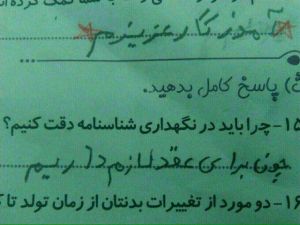 آموزگار عزیزم
پاسخ کامل بدهید.
۱۵- چرا باید در نگهداری شناسنامه دقت کنیم؟
چون برای عقد لازم داریم
۱۶- دو مورد از تغییرات بدنتان از زمان تولد تا